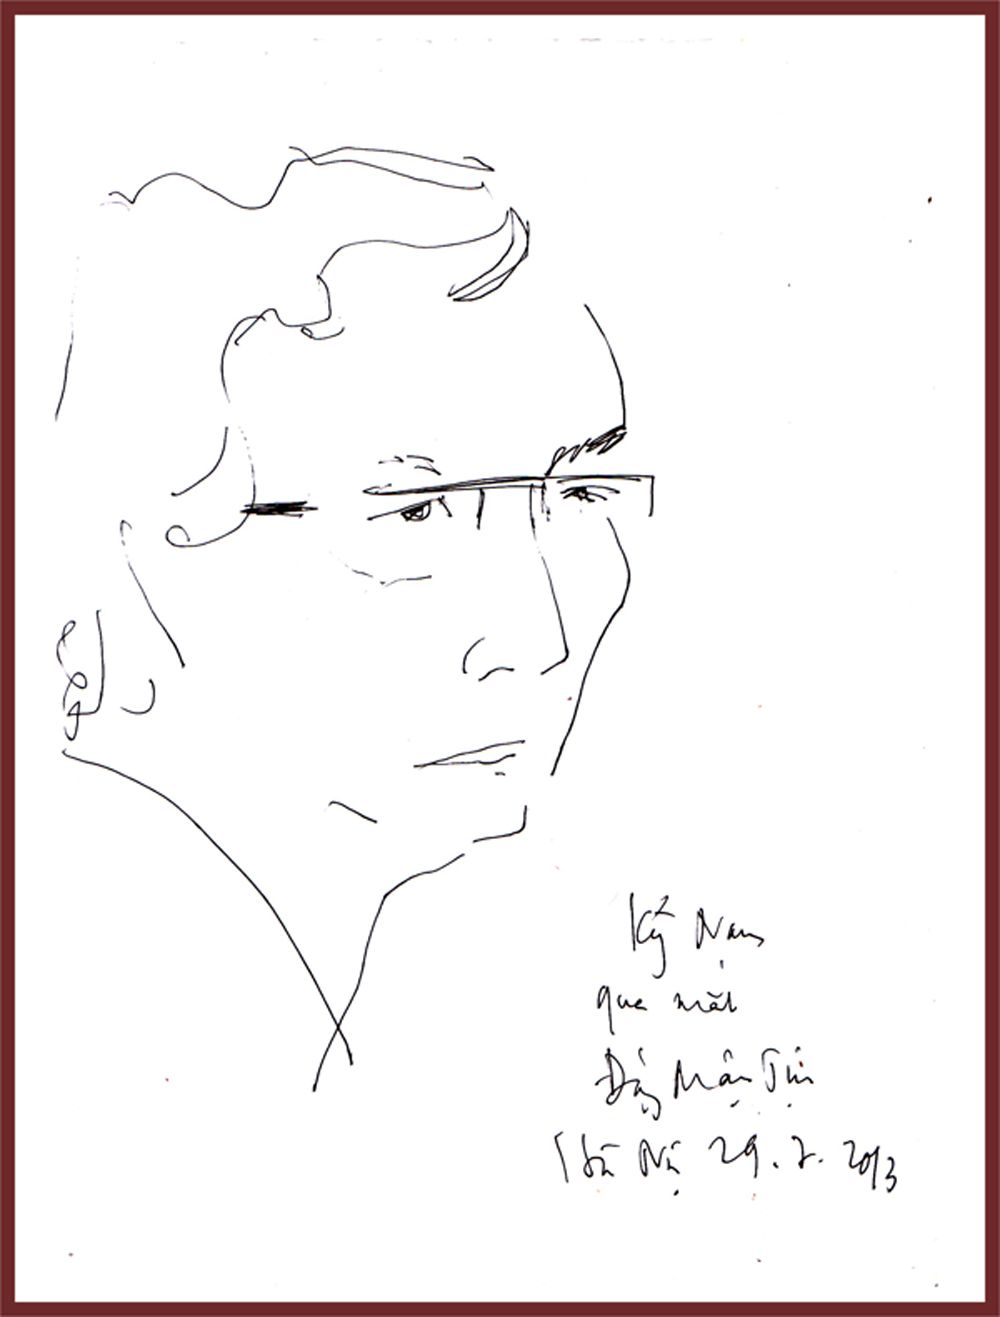 Kỷ Nam
qua mắt
Đặng Mậu Tựu
Hà Nội 29.7.2013